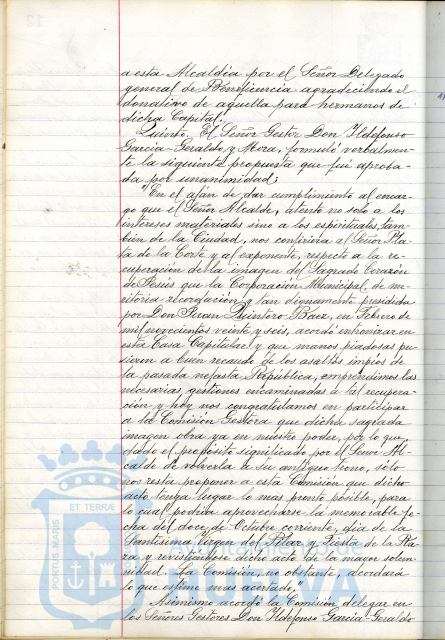 a esta Alcaldía por el Señor Delegado
general de Beneficencia agradeciendo el
donativo de aquella para hermanos de
dicha Capital.
Quinto. El Señor Gestor Don Ildefonso
García-Geraldo y Mora, formuló verbalmen-
te la siguiente propuesta que fué aproba-
da por unanimidad:
"En el afán de dar cumplimiento al encar-
go que el Señor Alcalde, atento no solo a los
intereses materiales sino a los espirituales tam-
bién de la Ciudad, nos confiriera al Señor Pla-
ta de la Corte y al exponente, respecto a la re-
cuperación de la imagen del Sagrado Corazón
de Jesús que la Corporación Municipal, de me-
ritoria recordación y tan dignamente presidida
por Don Juan Quintero Báez, en Febrero de
mil novecientos veinte y seis, acordó entronizar en
esta Casa Capitular y que manos piadosas pu-
sieron a buen recaudo de los asaltos impíos de
la pasada nefasta República, emprendimos las
necesarias gestiones encaminadas a tal recupera-
ción y hoy nos congratulamos en participar
a la Comisión Gestora que dicha sagrada
imagen obra ya en nuestro poder, por lo que,
dado el propósito significado por el Señor Al-
calde de volverla a su antiguo trono, sólo
nos resta proponer a esta Comisión que dicho
acto tenga lugar lo mas pronto posible, para
lo cual podría aprovecharse la memorable fe-
cha del doce de Octubre corriente, día de la
Santísima Virgen del Pilar y Fiesta de la Ra-
za y revistiéndose dicho acto de la mayor solem-
nidad. La Comisión, no obstante, acordará
lo que estime mas acertado."
Asimismo acordó la Comisión delegar en
los Señores Gestores Don Ildefonso García-Geraldo
PORTUS MARIS ET TERRAE
HUELVA